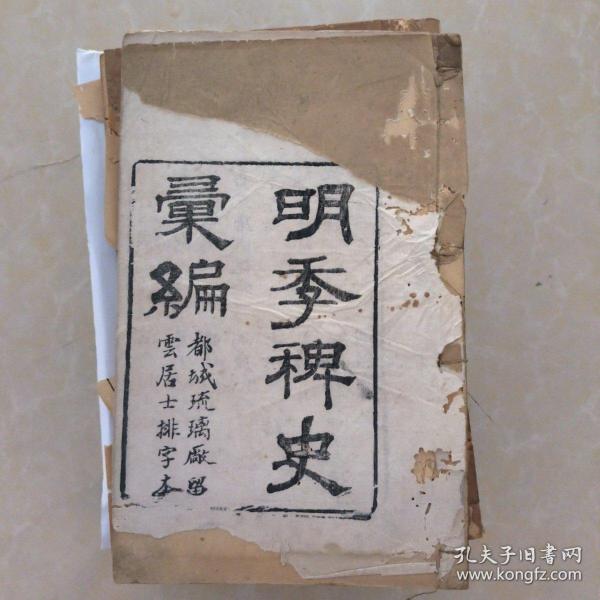 明季稗史
彙編
都城琉璃厰留
雲居士排字本
孔夫子旧书网
www.kongfz.com